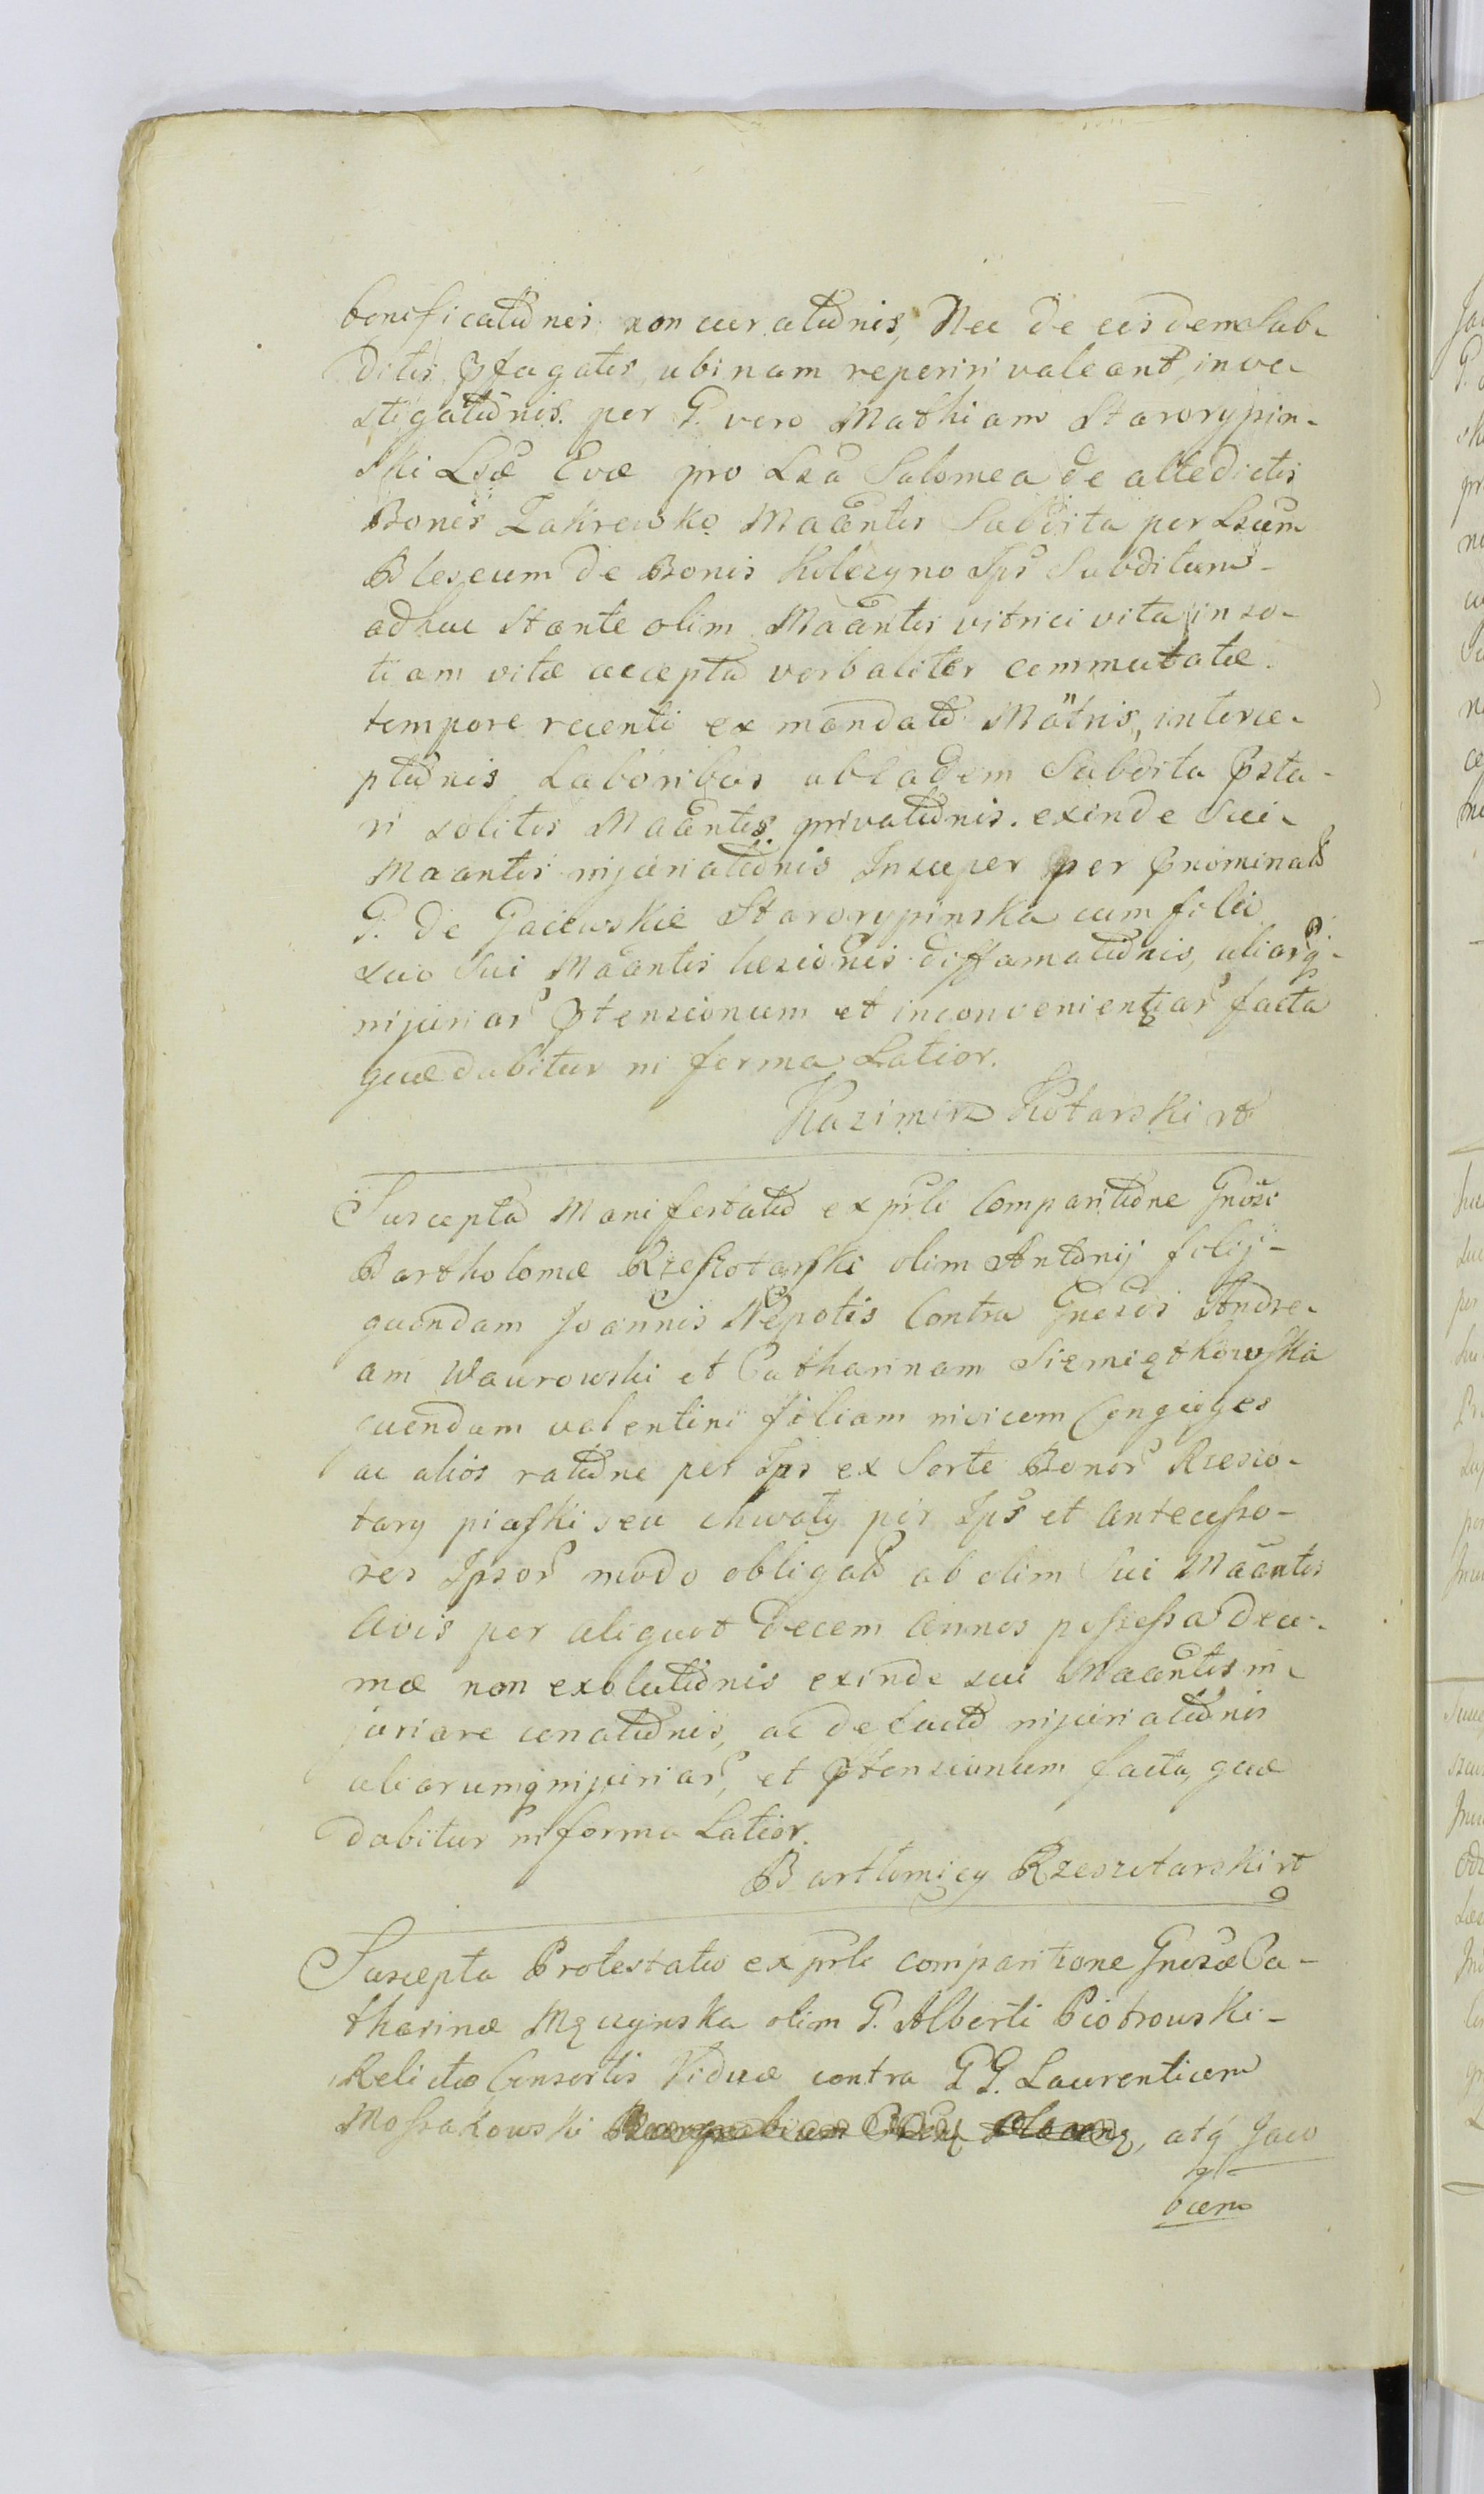 bonificatiônis non curatiônis, Nec de eisdem Sub-
ditis profugatis, ubinam reperiri valeant, inve-
stigatiônis. per G. vero Mathiam Starorypin-
ski Lsæ Evæ pro Lsa Salomea de altedictis
Bonis Zakrewko Maäntis Subdita per Lsum
Bleseum de Bonis Kolczyno Ips Subditum
adhuc Stante olim Maäntis vitrici vita in so-
tiam vitæ accepta verbaliter commutatæ
tempore recenti ex mandato Mätris, interce-
ptiônis Laboribus ab eadem Subdita præsta-
ri solitis Maäntis privatiônis. exinde Sui
Maantis injuriatiônis Insuper per prænominat
G. de Gaiewskie Starorypinska cum filio
suo Sui Maäntis læsiônis diffamatiônis, aliarq
injuriar prætensionum et inconvenientiar facta
quæ dabitur in forma Latior.
Kazimirz Kotarski
Suscepta Manifestatio ex prsli Comparitiône Gnösi
Bartholomæ Rzeszotarski olim Antonij filij
quondam Joannis Nepotis Contra Gnesos Andre-
am Wawrowski et Catharinam Siemiątkowska
quendam valentini filiam invicem Conjuges
ac alios ratiône per Ips ex Sorte Bonor Rzeszo-
tary piaski seu chwały per Ips et antecesso-
res Ipsor modo obligato ab olim Sui Maäntis
Avis per aliquot Decem Annos possessa Deci-
mæ non exolutiônis exinde sui Maäntis in-
juriare conatiônis, ac de facto injuriatiônis
aliarumq injuriar, et prætensionum facta, quæ
dabitur in forma Latior.
Bartłomiey Rzeszotarski
Suscepta Protestatio ex prsli comparitione Gnosæ Ca-
tharinæ Mączynska olim G. Alberti Piotrowski
Relictæ Consortis Viduæ contra GG. Laurentium
Mossakowski, atq Jaco
bum